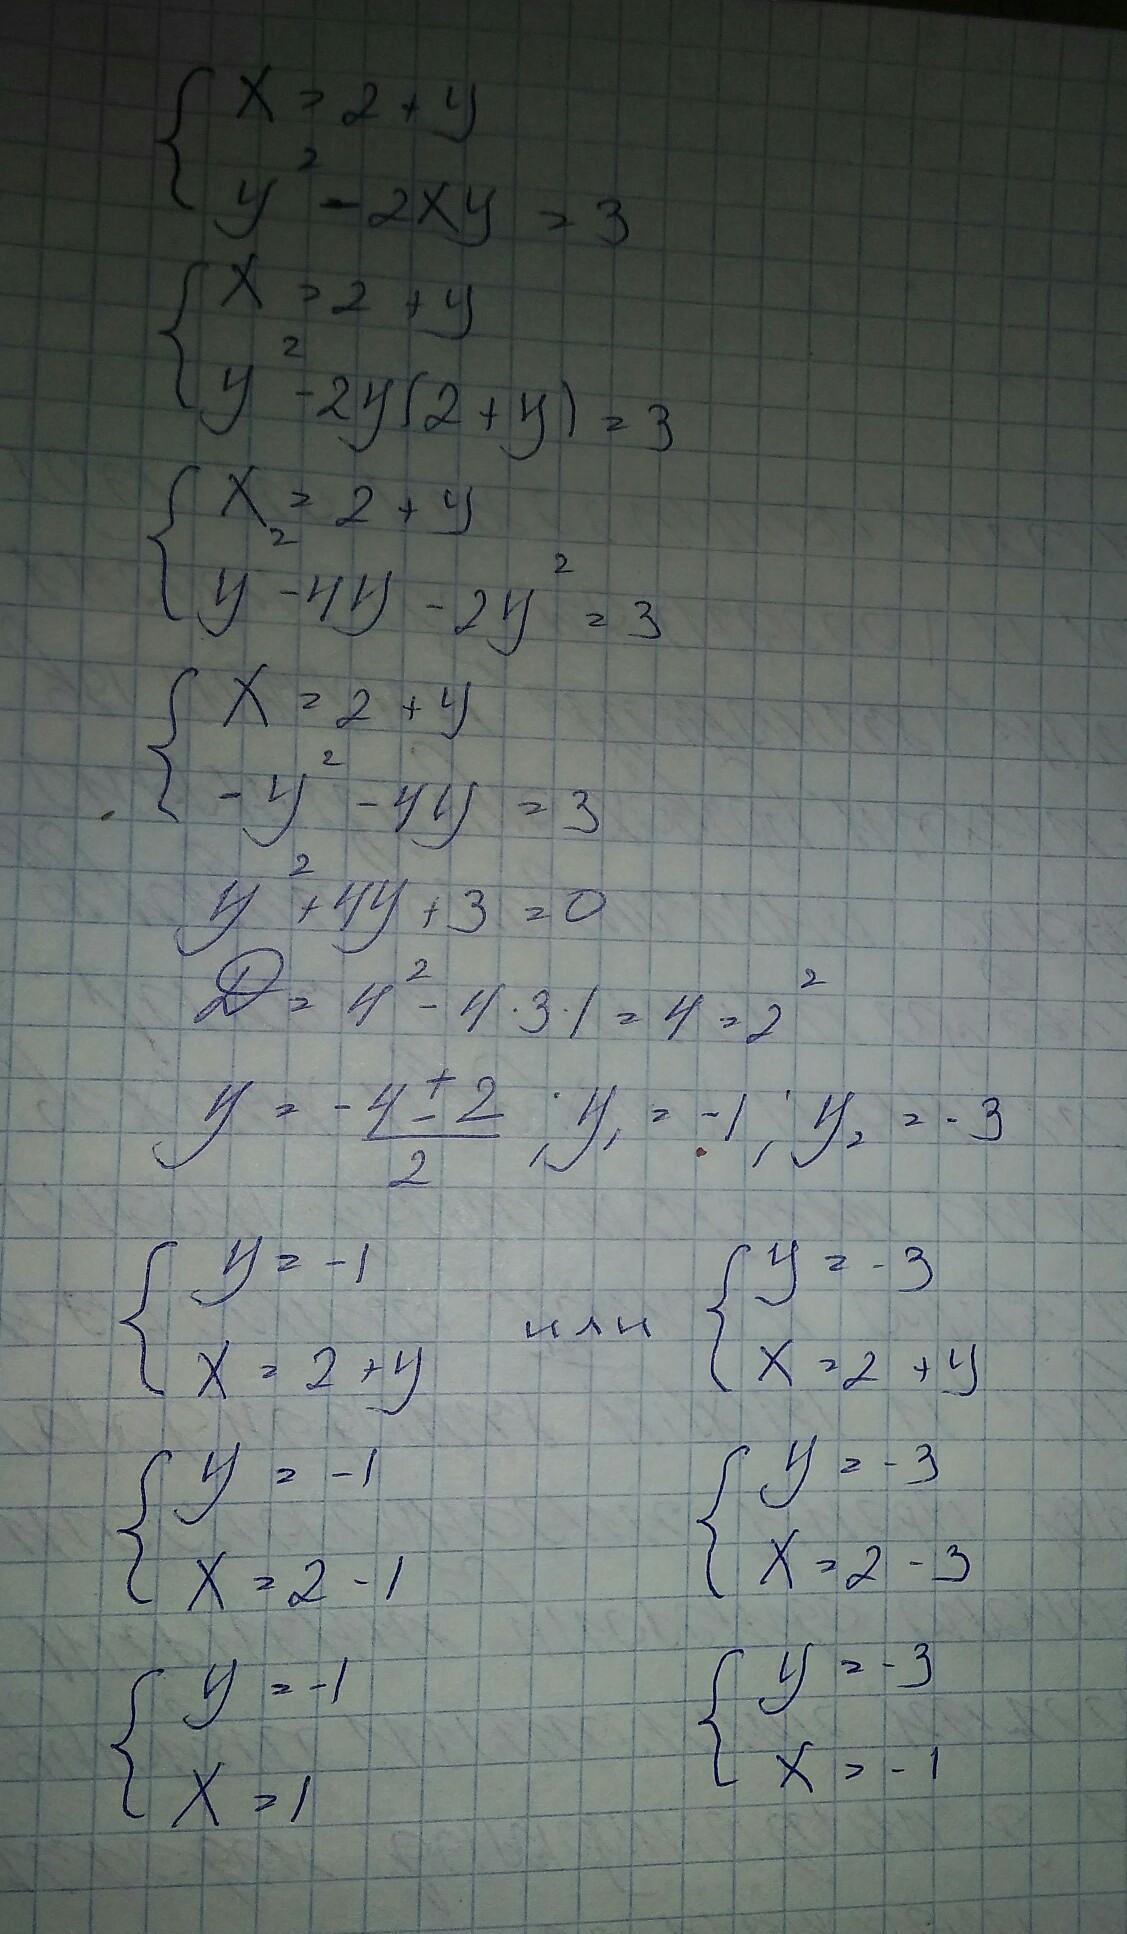 { x = 2 + y
y² - 2xy = 3
{ x = 2 + y
y² - 2y(2 + y) = 3
{ x = 2 + y
y² - 4y - 2y² = 3
{ x = 2 + y
-y² - 4y = 3
y² + 4y + 3 = 0
D = 4² - 4·3·1 = 4 = 2²
y = (-4 ± 2)/2 ; y₁ = -1 ; y₂ = -3
{ y = -1 или { y = -3
x = 2 + y x = 2 + y
{ y = -1 { y = -3
x = 2 - 1 x = 2 - 3
{ y = -1 { y = -3
x = 1 x = -1